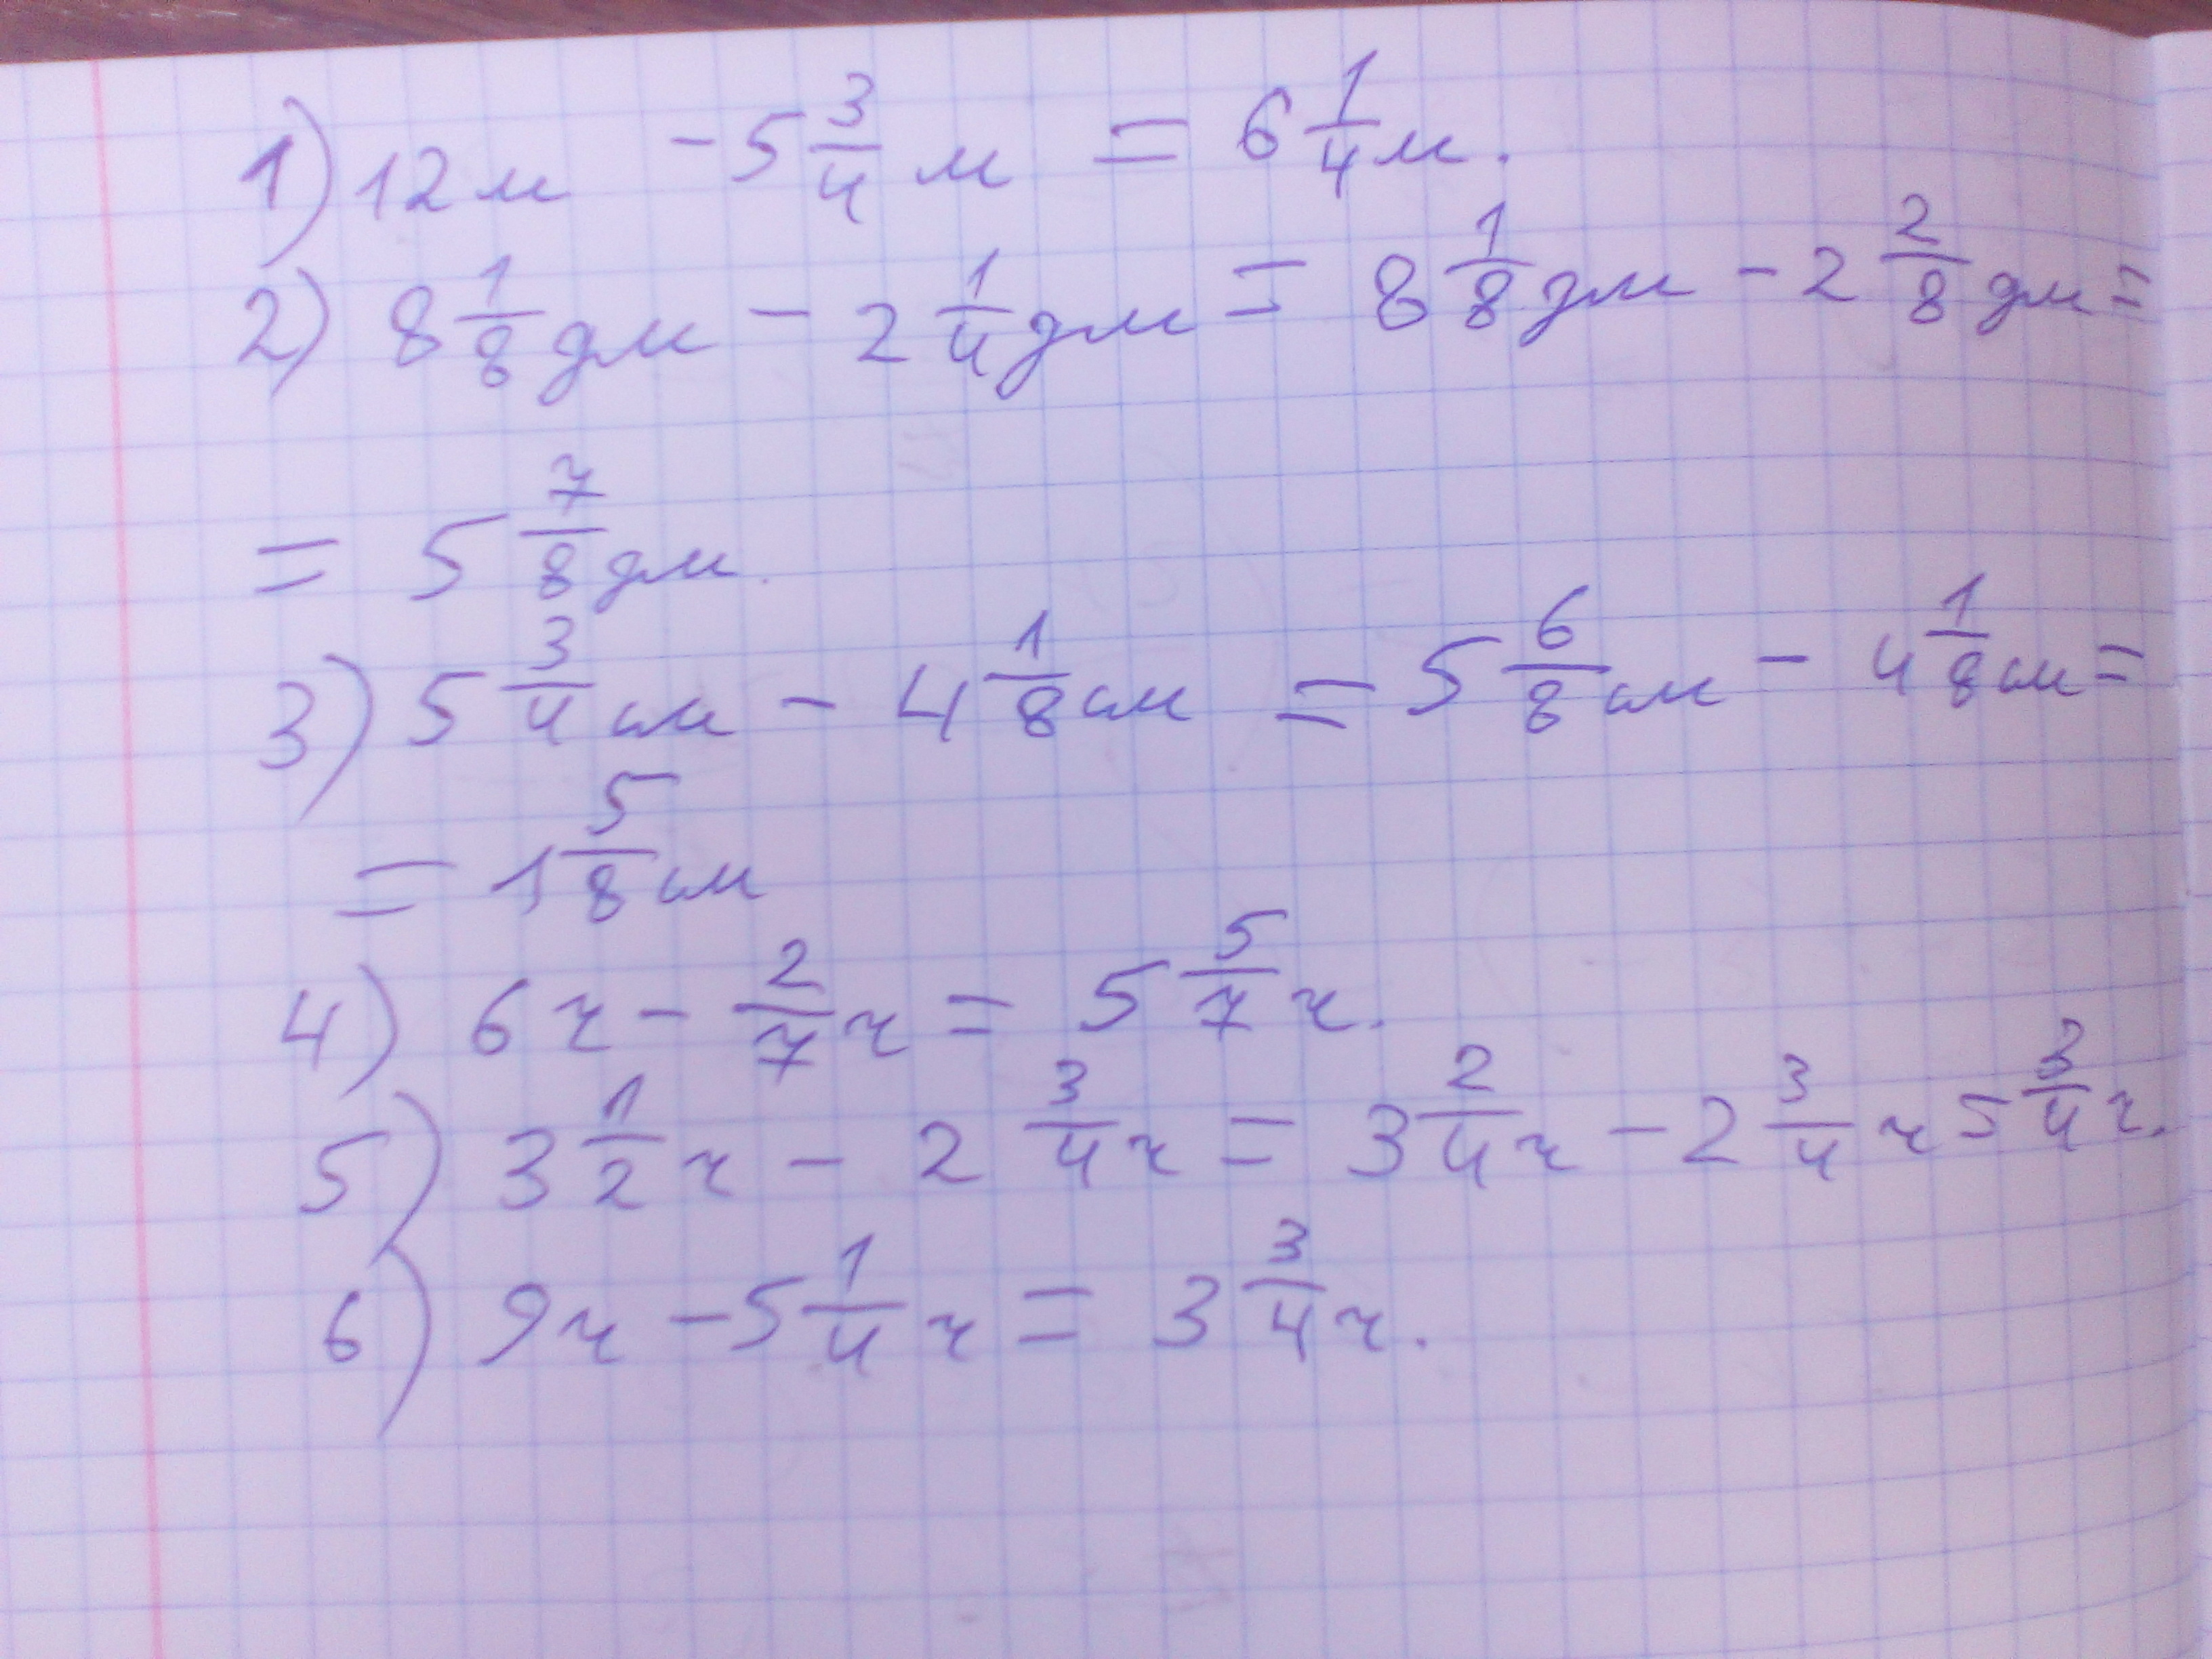 1) 12 м - 5 3/4 м = 6 1/4 м.
2) 8 1/8 дм - 2 1/4 дм = 8 1/8 дм - 2 2/8 дм =
= 5 7/8 дм.
3) 5 3/4 см - 4 1/8 см = 5 6/8 см - 4 1/8 см =
= 1 5/8 см
4) 6 ч - 2/7 ч = 5 5/7 ч.
5) 3 1/2 ч - 2 3/4 ч = 3 2/4 ч - 2 3/4 ч 5 3/4 ч.
6) 9 ч - 5 1/4 ч = 3 3/4 ч.